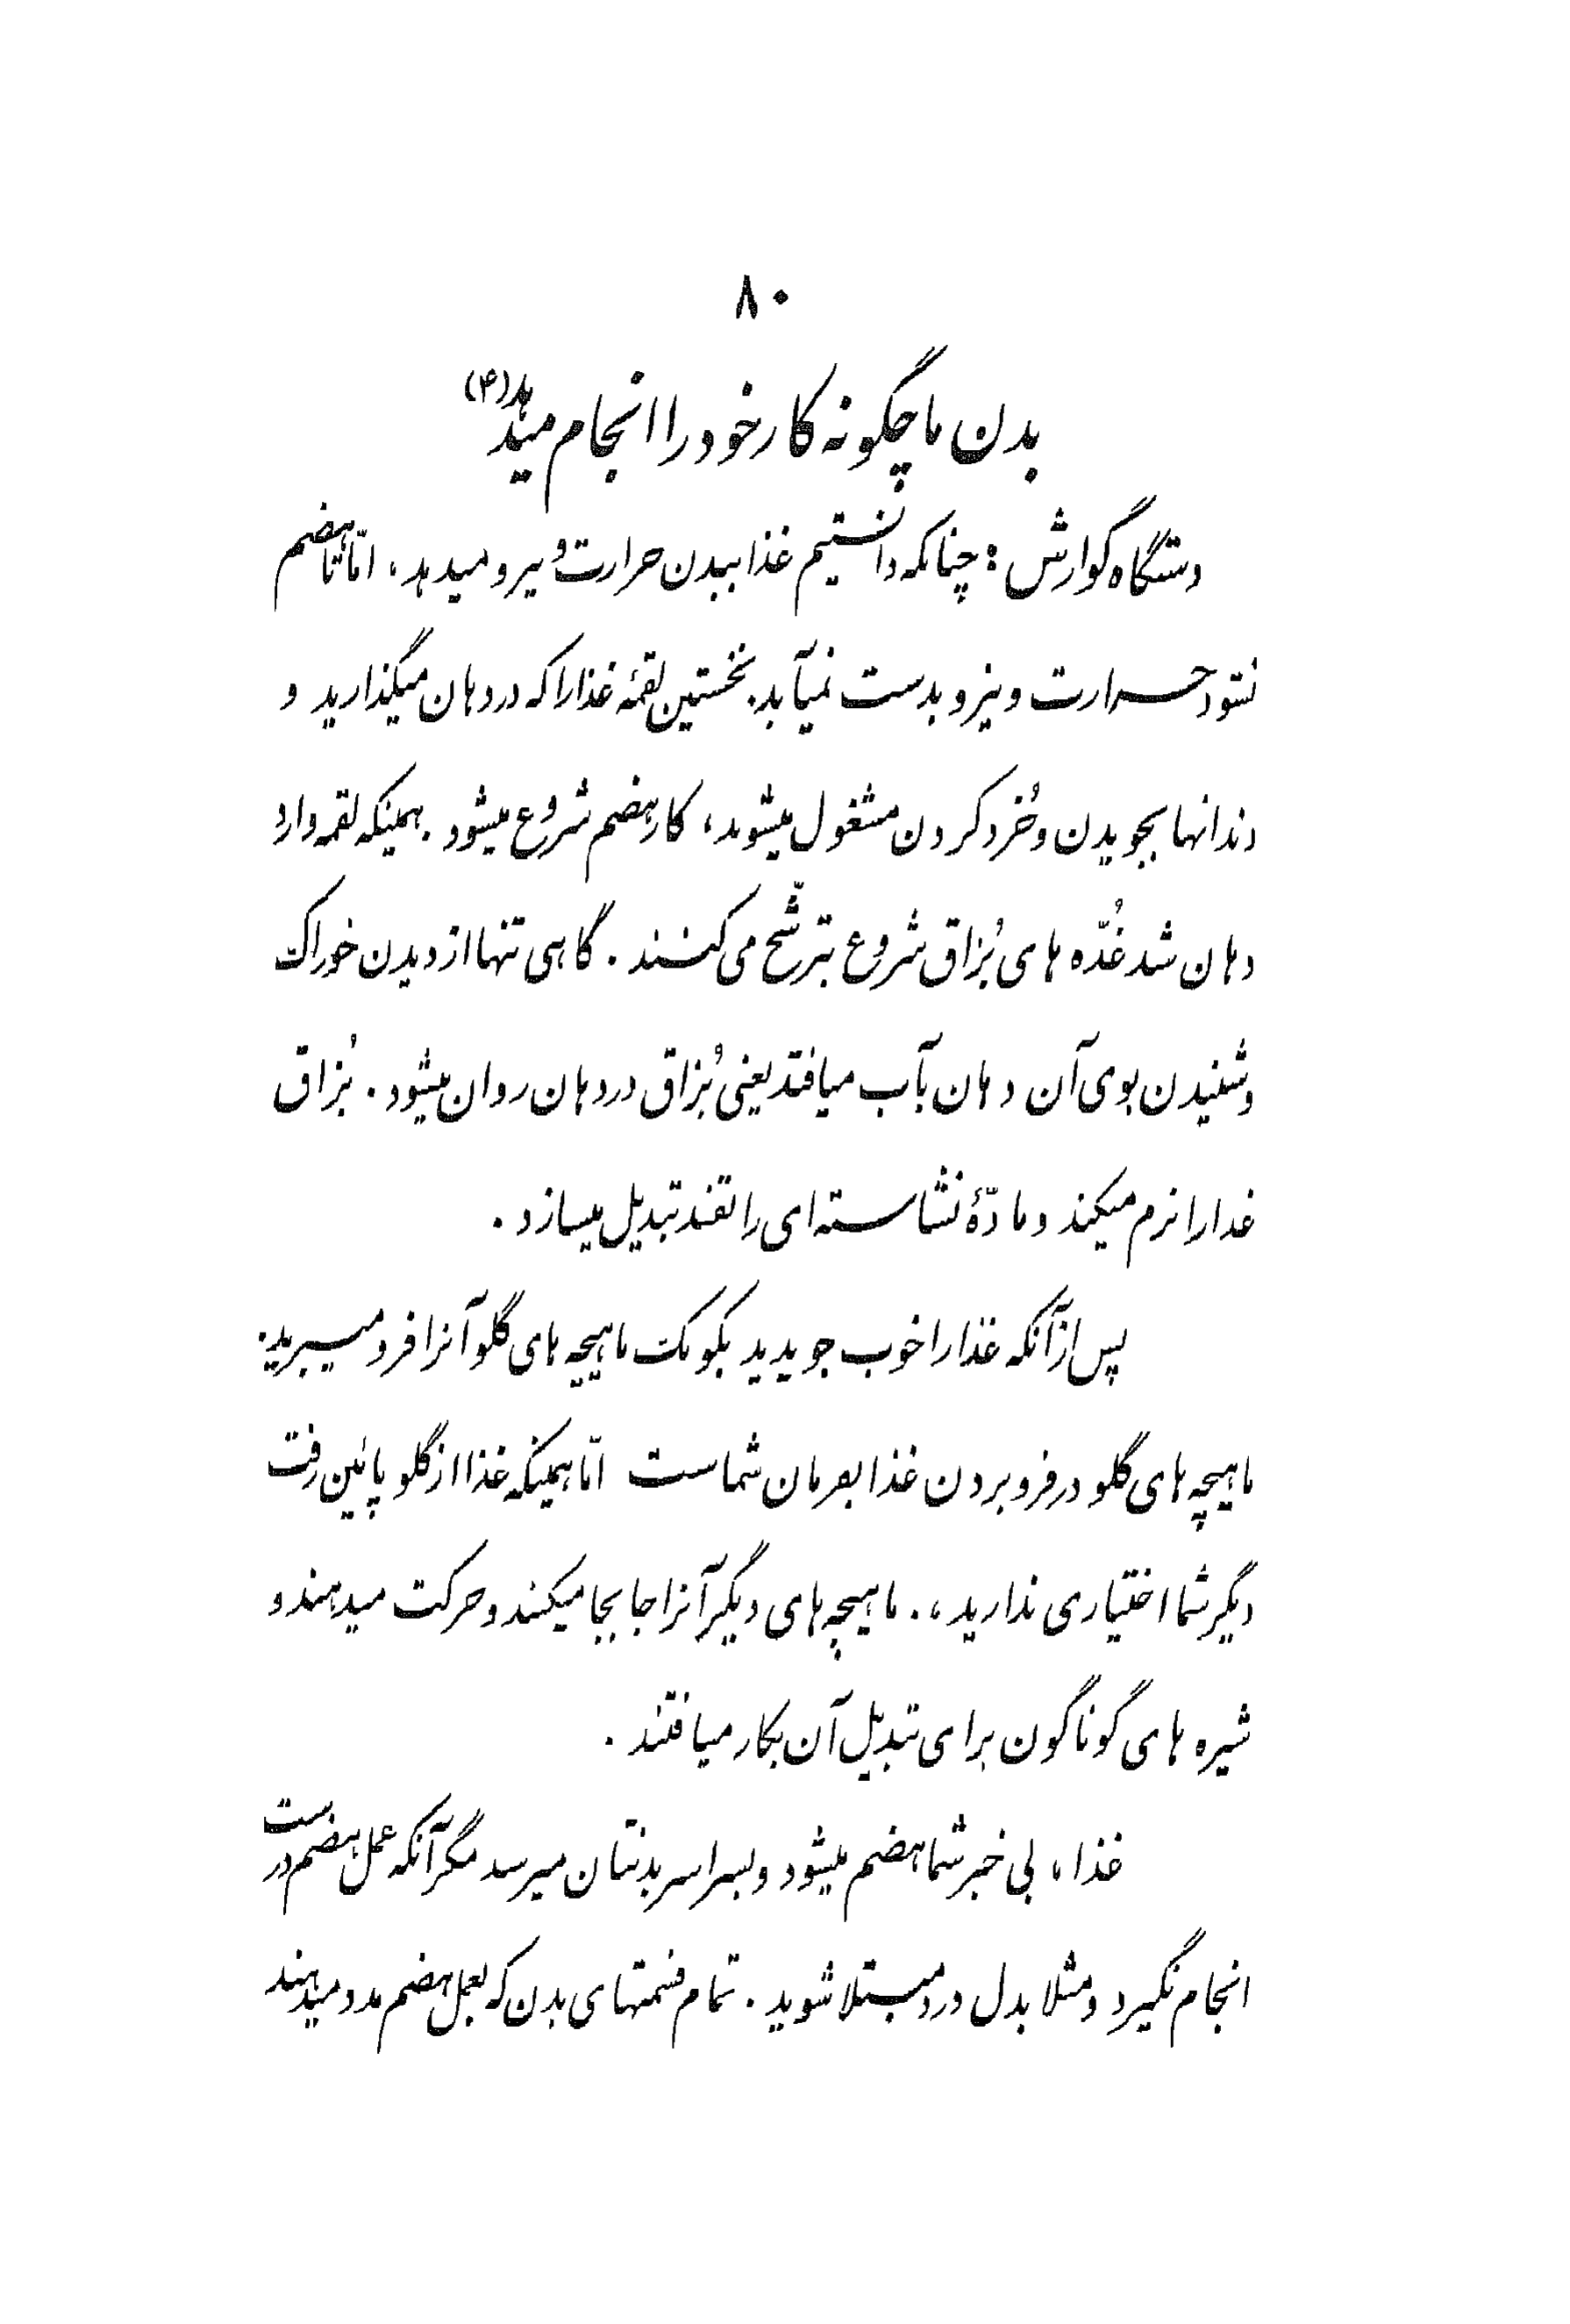 ۸۰
بدن ما چگونه کار خود را انجام میدهد (۴)
دستگاه گوارش : چنانکه دانستیم غذا ببدن حرارت و نیرو میدهد ، امّا تا هضم
نشود حرارت و نیرو بدست نمیآید . نخستین لقمهٔ غذا را که در دهان میگذارید و
دندانها بجویدن و خُرد کردن مشغول میشوند ، کار هضم شروع میشود . همینکه لقمه وارد
دهان شد غُدّه های بُزاق شروع بترشّح می کنند . گاهی تنها از دیدن خوراک
و شنیدن بوی آن دهان بآب میافتد یعنی بُزاق در دهان روان میشود . بُزاق
غذا را نرم میکند و مادّهٔ نشاسته ای را بقند تبدیل میسازد .
پس از آنکه غذا را خوب جویدید بکومک ماهیچه های گلو آنرا فرو میبرید .
ماهیچه های گلو در فرو بردن غذا بفرمان شماست امّا همینکه غذا از گلو پائین رفت
دیگر شما اختیاری ندارید ، . ماهیچه های دیگر آنرا جابجا میکنند و حرکت میدهند و
شیره های گوناگون برای تبدیل آن بکار میافتند .
غذا ، بی خبر شما هضم میشود و بسراسر بدنتان میرسد مگر آنکه عمل هضم درست
انجام نگیرد و مثلا بدل درد مبتلا شوید . تمام قسمتهای بدن که بعمل هضم مدد میدهند